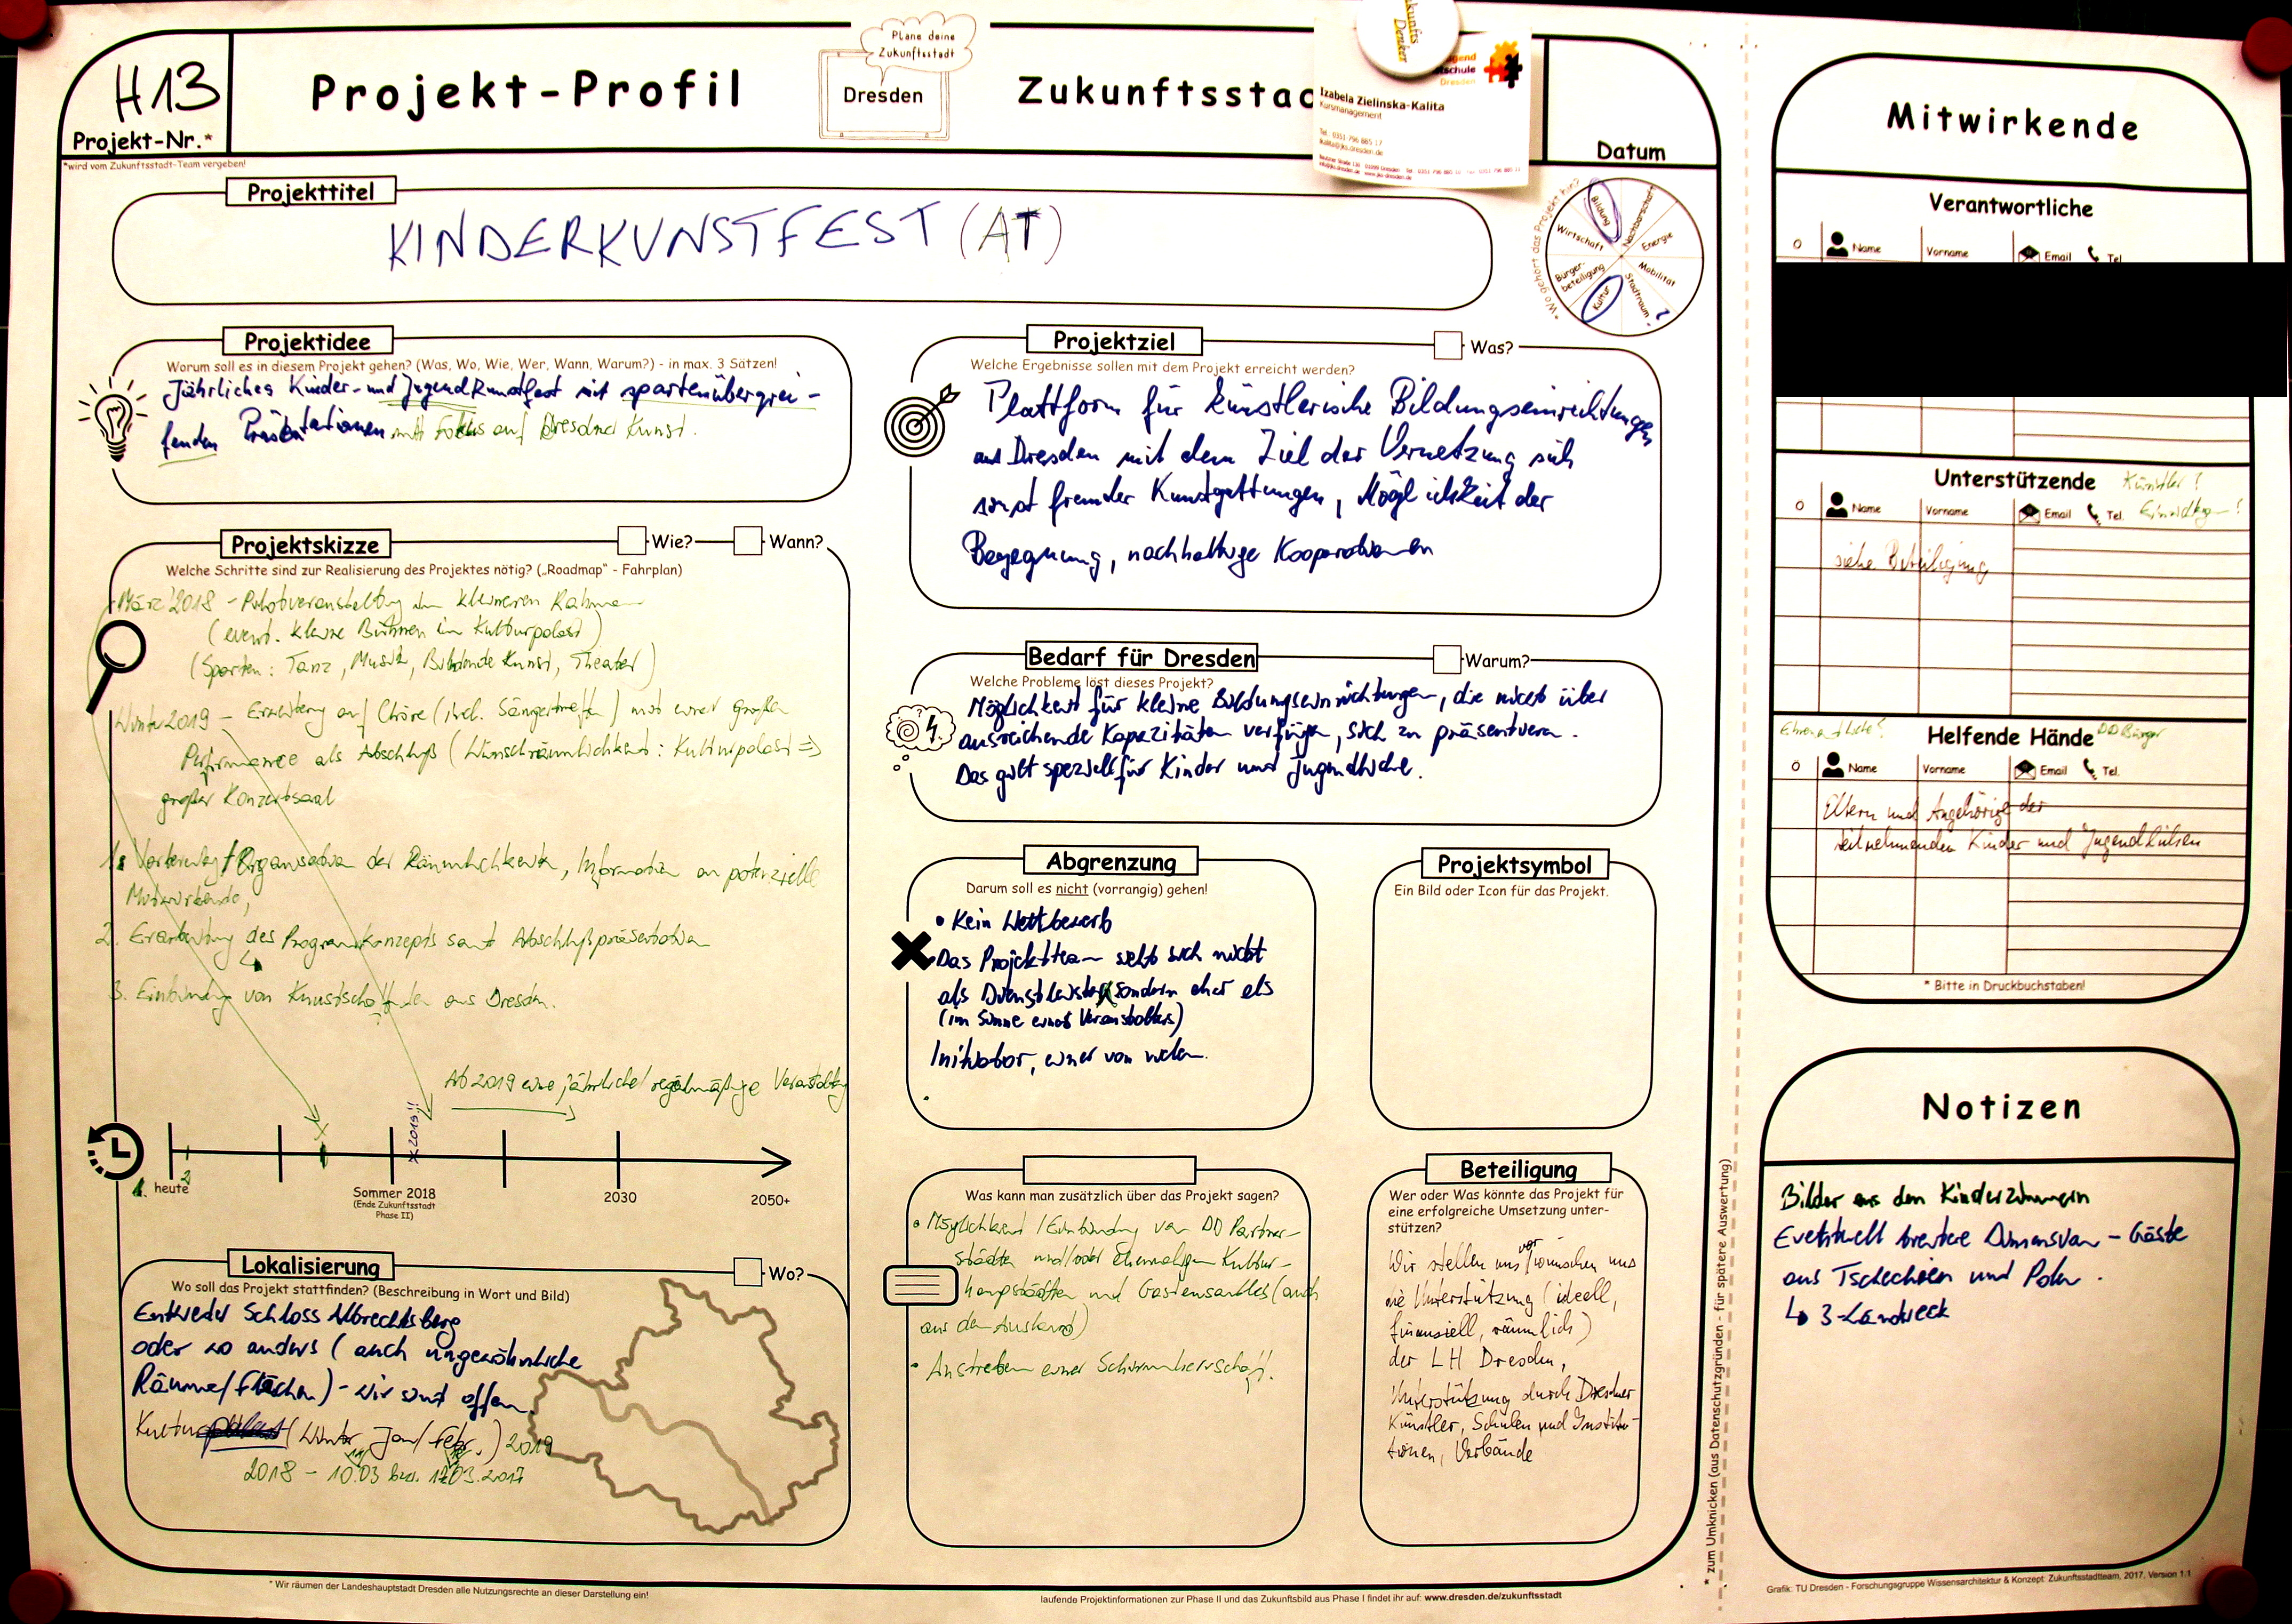 H13
Projekt-Nr.*
*wird vom Zukunftsstadt-Team vergeben!
Projekt-Profil
Plane deine
Zukunftsstadt
Dresden
Zukunftsstad
Zukunfts
Denker
Izabela Zielinska-Kalita
Kursmanagement
Datum
Projekttitel
KINDERKUNSTFEST (AT)
*Wo gehört das Projekt hin?
Bildung
Nachbarschaft
Energie
Mobilität
Stadtraum ?
Kultur
Bürger-
beteiligung
Wirtschaft
Projektidee
Worum soll es in diesem Projekt gehen? (Was, Wo, Wie, Wer, Wann, Warum?) - in max. 3 Sätzen!
Jährliches Kinder- und Jugendkunstfest mit spartenübergrei-
fenden Präsentationen mit Fokus auf Dresdner Kunst.
Projektskizze
Wie?
Wann?
Welche Schritte sind zur Realisierung des Projektes nötig? („Roadmap" - Fahrplan)
März 2018 - Pilotveranstaltung im kleineren Rahmen
(event. kleine Bühnen im Kulturpalast)
(Sparten: Tanz, Musik, Bildende Kunst, Theater)
Winter 2019 - Erweiterung auf Chöre (incl. Sängertreffen) mit einer großen
Performance als Abschluß (Wunschräumlichkeit: Kulturpalast ⇒
großer Konzertsaal
1. Vorbereitung/Organisation der Räumlichkeiten, Information an potenzielle
Mitwirkende,
2. Erarbeitung des Programmkonzepts samt Abschlußpräsentation
3. Einbindung von Kunstschaffenden aus Dresden.
Ab 2019 eine jährliche/regelmäßige Veranstaltung
x 2019!!
1. heute
2
Sommer 2018
(Ende Zukunftsstadt
Phase II)
2030
2050+
Lokalisierung
Wo?
Wo soll das Projekt stattfinden? (Beschreibung in Wort und Bild)
Entweder Schloss Albrechtsberg
oder wo anders (auch ungewöhnliche
Räume/Flächen) - wir sind offen
Kulturpalast (Winter Jan/Febr.) 2019
2018 - 10.03 bzw. 17.03.2017
Projektziel
Was?
Welche Ergebnisse sollen mit dem Projekt erreicht werden?
Plattform für künstlerische Bildungseinrichtungen
aus Dresden mit dem Ziel der Vernetzung sich
sonst fremder Kunstgattungen, Möglichkeit der
Begegnung, nachhaltige Kooperationen
Bedarf für Dresden
Warum?
Welche Probleme löst dieses Projekt?
Möglichkeit für kleine Bildungseinrichtungen, die nicht über
ausreichende Kapazitäten verfügen, sich zu präsentieren.
Das gilt speziell für Kinder und Jugendliche.
Abgrenzung
Darum soll es nicht (vorrangig) gehen!
• Kein Wettbewerb
• Das Projektteam sieht sich nicht
als Dienstleister sondern eher als
(im Sinne eines Veranstalters)
Initiator, einer von vielen.
Projektsymbol
Ein Bild oder Icon für das Projekt.
Was kann man zusätzlich über das Projekt sagen?
• Möglichkeit/Einbindung von DD Partner-
städten und/oder ehemaligen Kultur-
hauptstädten und Gastensembles (auch
aus dem Ausland)
• Anstreben einer Schirmherrschaft.
Beteiligung
Wer oder Was könnte das Projekt für
eine erfolgreiche Umsetzung unter-
stützen?
Wir stellen uns vor/wünschen uns
die Unterstützung (ideell,
finanziell, räumlich)
der LH Dresden,
Unterstützung durch Dresdner
Künstler, Schulen und Institu-
tionen, Verbände
Mitwirkende
Verantwortliche
Name
Vorname
Email
Tel.
Unterstützende
Künstler!
Einrichtungen!
Name
Vorname
Email
Tel.
siehe Beteiligung
Ehrenamtliche!
Helfende Hände
DD Bürger
Name
Vorname
Email
Tel.
Eltern und Angehörige der
teilnehmenden Kinder und Jugendlichen
* Bitte in Druckbuchstaben!
Notizen
Bilder aus den Kinderzimmern
Eventuell breitere Dimension - Gäste
aus Tschechien und Polen.
↳ 3-Ländereck
* zum Umknicken (aus Datenschutzgründen - für spätere Auswertung)
* Wir räumen der Landeshauptstadt Dresden alle Nutzungsrechte an dieser Darstellung ein!
laufende Projektinformationen zur Phase II und das Zukunftsbild aus Phase I findet ihr auf: www.dresden.de/zukunftsstadt
Grafik: TU Dresden - Forschungsgruppe Wissensarchitektur & Konzept: Zukunftsstadtteam, 2017, Version 1.1